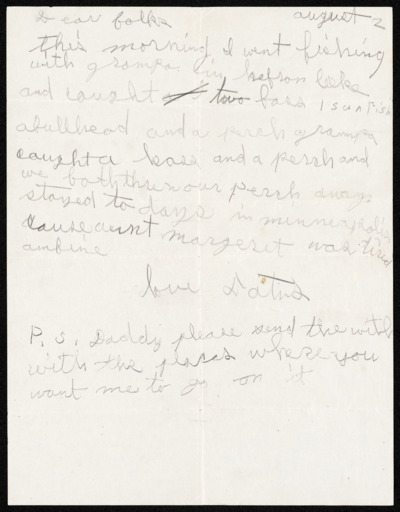 Dear folks august 2
this morning I went fishing
with grampa in hefron lake
and caught two bass 1 sunfish
a bullhead and a perch grampa
caught a bass and a perch and
we both threw our perch away.
stayed to days in minneapolis
cause aunt margeret was tired
love Datus
P. S. Daddy please send the
with the places where you
want me to go on it